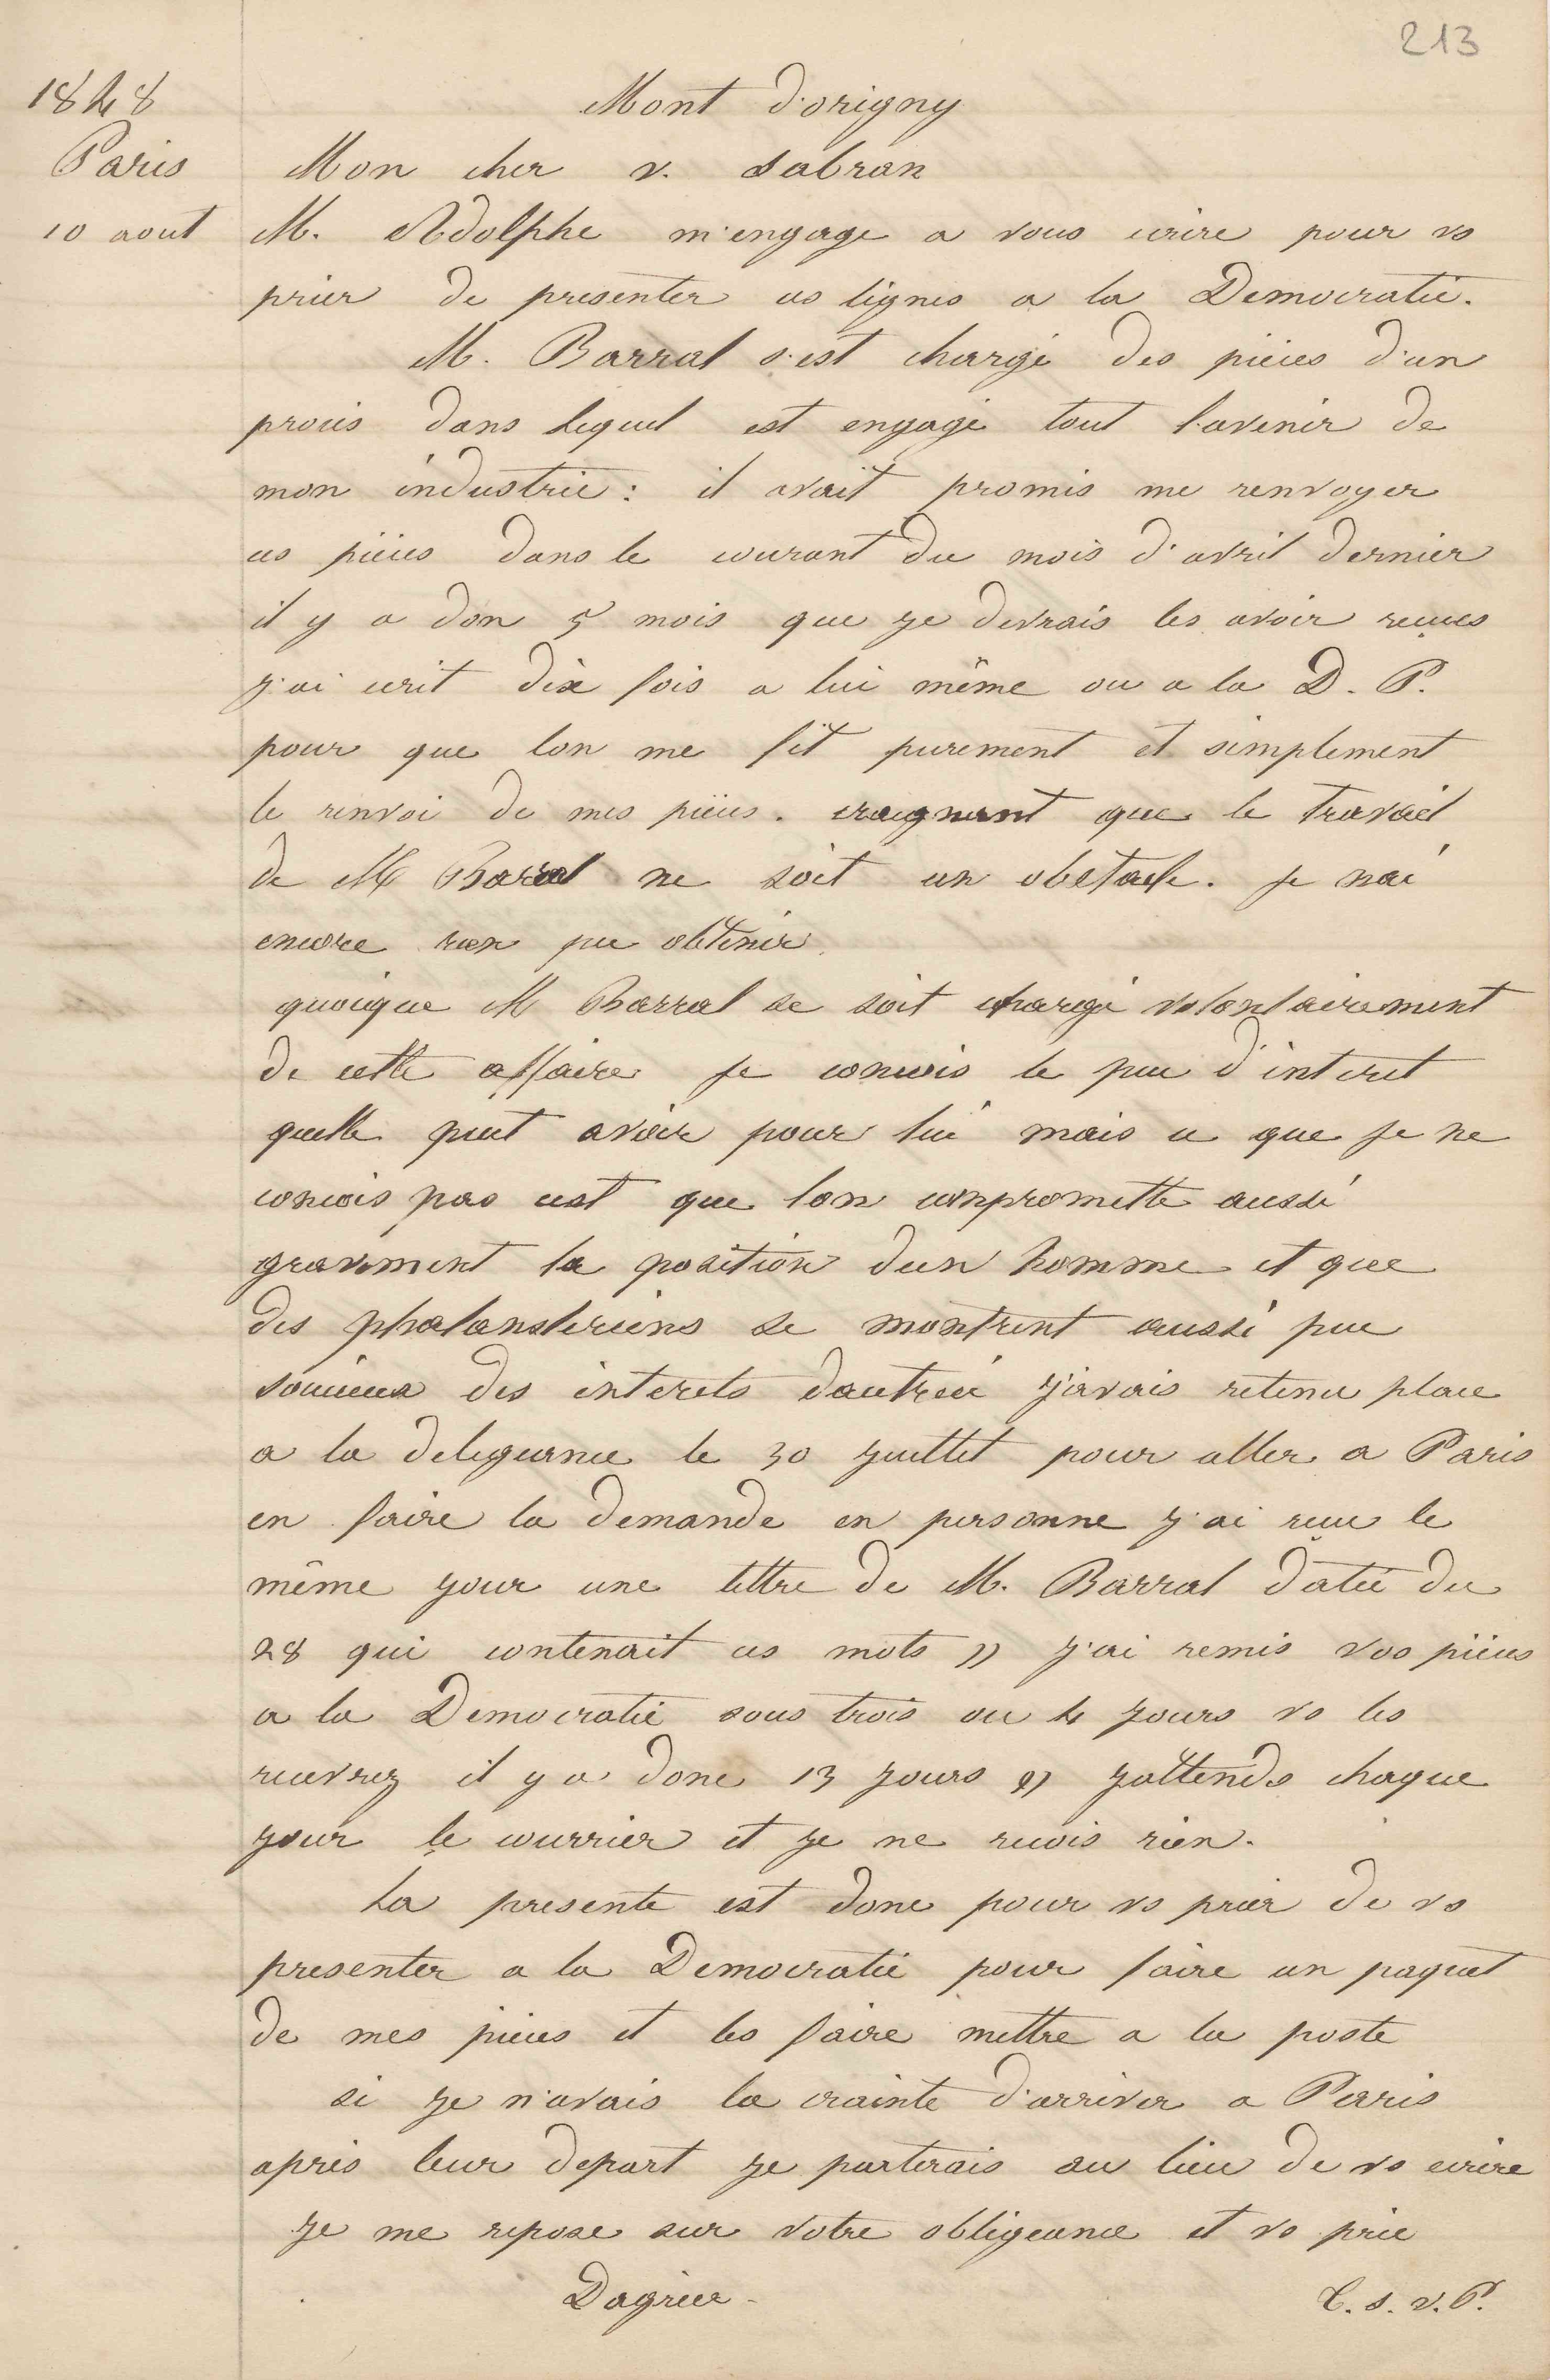 213
1848
Mont d'origny
Paris
Mon cher v. Sabran
10 aout
M. Adolphe m'engage a vous ecrire pour vs
prier de presenter ces lignes a la Democratie.
M. Barral s'est chargé des pièces d'un
procès dans lequel est engagé tout l'avenir de
mon industrie : il avait promis me renvoyer
ces pièces dans le courant du mois d'avril dernier
il y a don 5 mois que je devrais les avoir reçues
j'ai ecrit dix fois a lui même ou a la D. P.
pour que lon me fit purement et simplement
le renvoi de mes pièces. craignant que le travail
de M Barral ne soit un obstacle. je nai
encore rien pu obtenir.
quoique M Barral se soit chargé volontairement
de cette affaire je concois le peu d'interet
quelle peut avoir pour lui mais ce que je ne
concois pas cest que lon compromette aussi
gravment la position dun homme et que
des phalansteriens se montrent aussi peu
soucieux des interets dautrui j'avais retenu place
a la deligeance le 30 juillet pour aller a Paris
en faire la demande en personne j'ai reçu le
même jour une lettre de M. Barral datée du
28 qui contenait ces mots " j'ai remis vos pièces
a la Democratie sous trois ou 4 jours vs les
recevrez il y a donc 13 jours " j'attends chaque
jour le courrier et je ne recois rien.
La presente est donc pour vs prier de vs
presenter a la Democratie pour faire un paquet
de mes pièces et les faire mettre a la poste
si je n'avais la crainte d'arriver a Paris
après leur depart je parterais au lieu de vs ecrire
je me repose sur votre obligeance et vs prie
Dagrier
T. s. v. P.